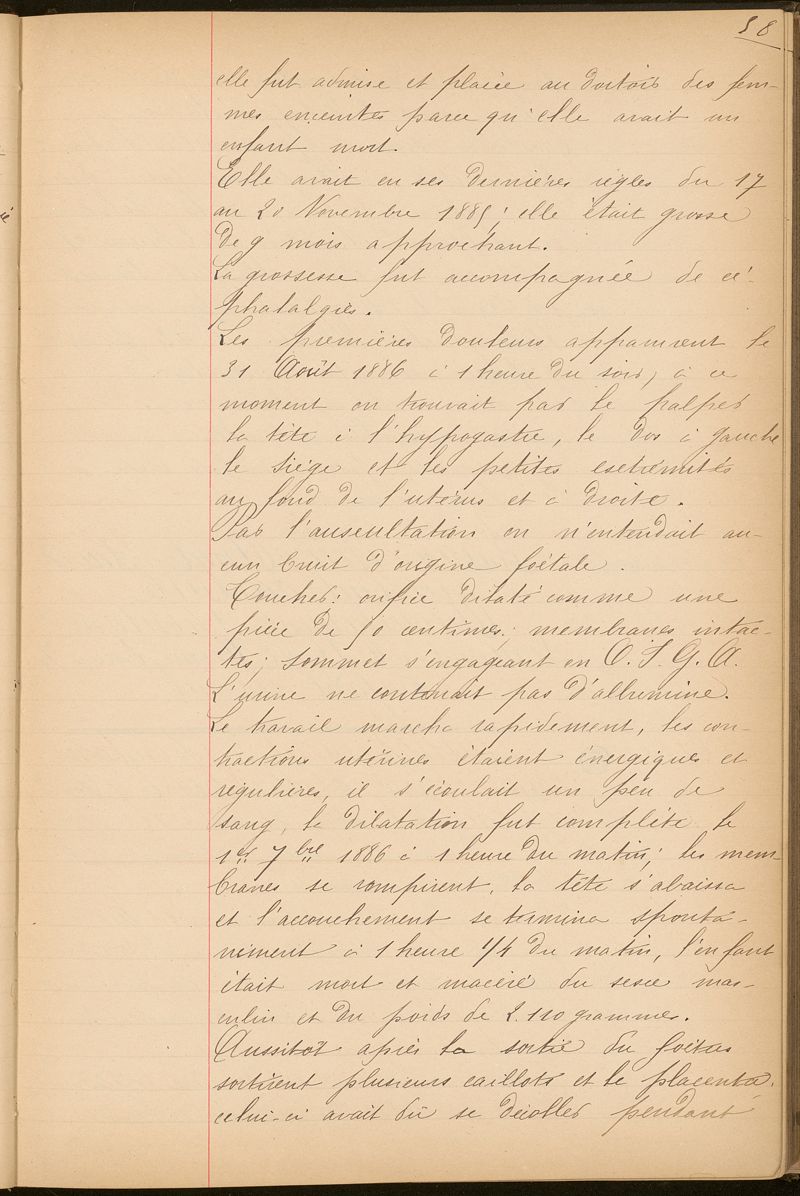 58
elle fut admise et placée au dortoir des fem-
mes enceintes parce qu'elle avait un
enfant mort.
Elle avait eu ses dernières règles du 17
au 20 Novembre 1885; elle était grosse
de 9 mois approchant.
La grossesse fut accompagnée de cé-
phalalgies.
Les premières douleurs apparurent le
31 Août 1886 à 1 heure du soir, à ce
moment on trouvait par le palper
la tête à l'hypogastre, le dos à gauche
le siège et les petites extrémités
au fond de l'utérus et à droite.
Par l'auscultation on n'entendait au-
cun bruit d'origine foetale.
Toucher: orifice dilaté comme une
pièce de 50 centimes; membranes intac-
tes; sommet s'engageant en O. I. G. A.
L'urine ne contenait pas d'albumine.
Le travail marcha rapidement, les con-
tractions utérines étaient énergiques et
régulières, il s'écoulait un peu de
sang, la dilatation fut complète le
1er 7bre 1886 à 1 heure du matin; les mem
branes se rompirent, la tête s'abaissa
et l'accouchement se termina sponta-
nément à 1 heure 1/4 du matin, l'enfant
était mort et macéré du sexe mas-
culin et du poids de 2.110 grammes.
Aussitôt après la sortie du foetus
sortirent plusieurs caillots et le placenta,
celui-ci avait dû se décoller pendant